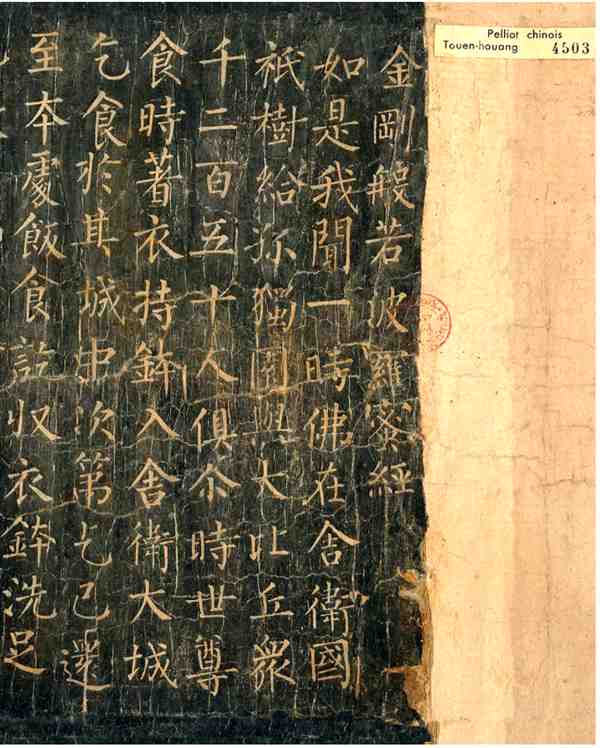 Pelliot chinois
Touen-houang 4503
金剛般若波羅蜜經
如是我聞一時佛在舍衛國
祇樹給孤獨園與大比丘衆
千二百五十人俱尒時世尊
食時著衣持鉢入舍衛大城
乞食於其城中次第乞已還
至本處飯食訖収衣鉢洗足